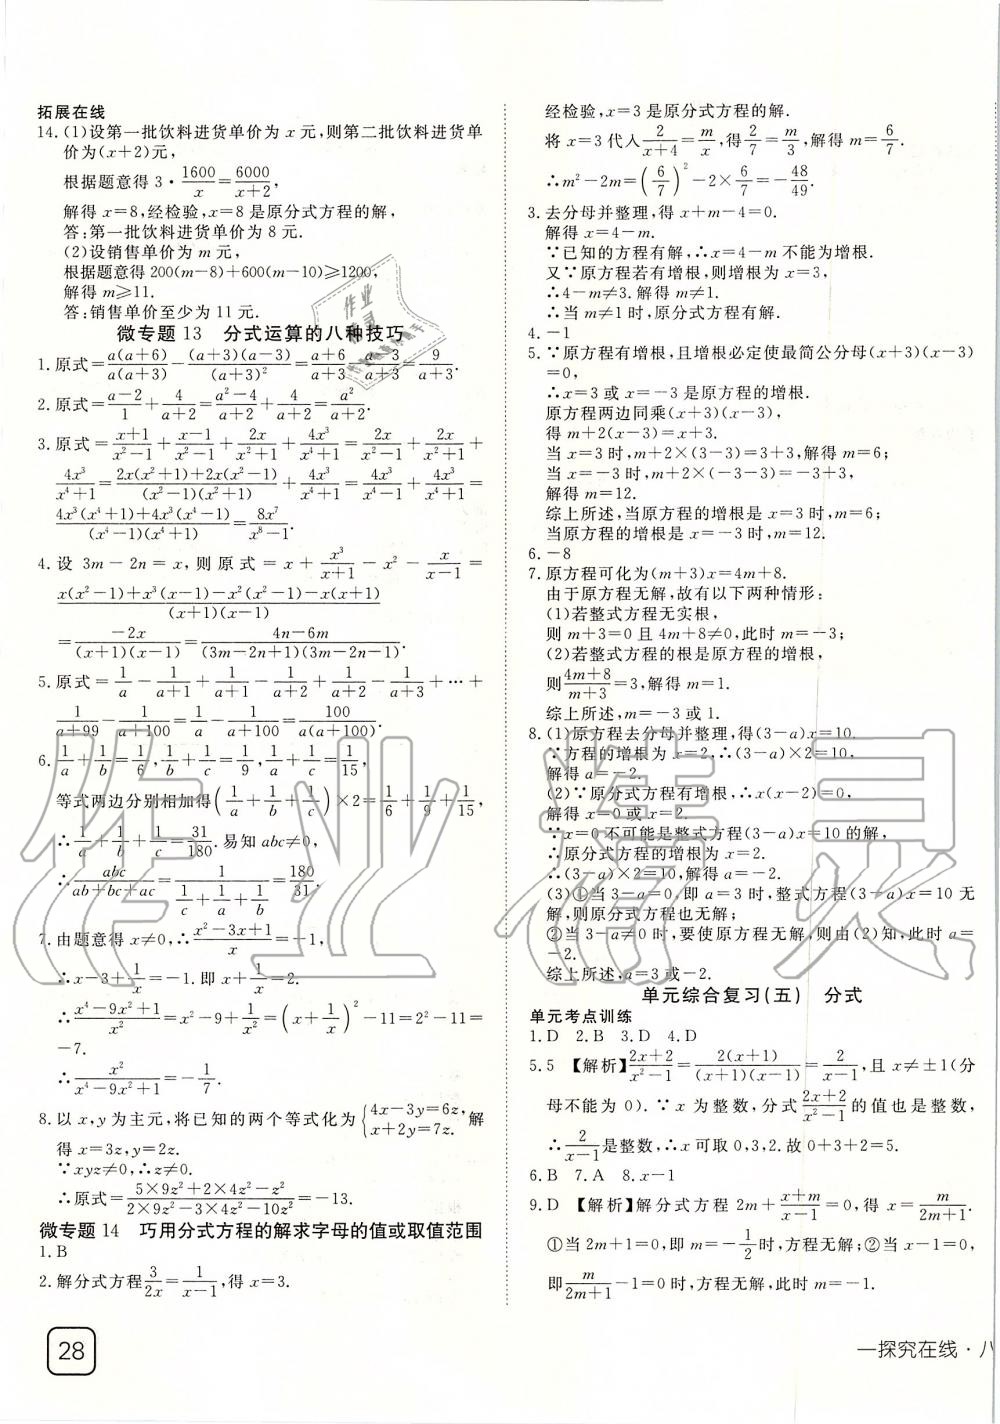 拓展在线
14.(1)设第一批饮料进货单价为 x 元,则第二批饮料进货单
价为(x+2)元,
根据题意得 3·1600/x=6000/(x+2),
解得 x=8,经检验,x=8 是原分式方程的解,
答:第一批饮料进货单价为 8 元.
(2)设销售单价为 m 元,
根据题意得 200(m-8)+600(m-10)≥1200,
解得 m≥11.
答:销售单价至少为 11 元.
微专题 13 分式运算的八种技巧
1.原式=a(a+6)/a(a+3)-(a+3)(a-3)/(a+3)²=(a+6)/(a+3)-(a-3)/(a+3)=9/(a+3).
2.原式=(a-2)/1+4/(a+2)=(a²-4)/(a+2)+4/(a+2)=a²/(a+2).
3.原式=(x+1)/(x²-1)+(x-1)/(x²-1)+2x/(x²+1)+4x³/(x⁴+1)=2x/(x²-1)+2x/(x²+1)+
4x³/(x⁴+1)=[2x(x²+1)+2x(x²-1)]/(x²-1)(x²+1)+4x³/(x⁴+1)=4x³/(x⁴-1)+4x³/(x⁴+1)=
[4x³(x⁴+1)+4x³(x⁴-1)]/(x⁴-1)(x⁴+1)=8x⁷/(x⁸-1).
4.设 3m-2n=x,则原式=x+x³/(x+1)-x²-x/(x-1)=
[x(x²-1)+x³(x-1)-x²(x²-1)-x(x+1)]/(x+1)(x-1)
=-2x/(x+1)(x-1)=(4n-6m)/(3m-2n+1)(3m-2n-1).
5.原式=1/a-1/(a+1)+1/(a+1)-1/(a+2)+1/(a+2)-1/(a+3)+…+
1/(a+99)-1/(a+100)=1/a-1/(a+100)=100/a(a+100).
6.1/a+1/b=1/6,1/b+1/c=1/9,1/a+1/c=1/15,
等式两边分别相加得(1/a+1/b+1/c)×2=1/6+1/9+1/15,
∴1/a+1/b+1/c=31/180.易知 abc≠0,
∴abc/(ab+bc+ac)=1/(1/c+1/a+1/b)=180/31.
7.由题意得 x≠0,∴(x²-3x+1)/x=-1,
∴x-3+1/x=-1.即 x+1/x=2.
∴(x⁴-9x²+1)/x²=x²-9+1/x²=(x+1/x)²-11=2²-11=
-7.
∴x²/(x⁴-9x²+1)=-1/7.
8.以 x,y 为主元,将已知的两个等式化为{4x-3y=6z, x+2y=7z.解
得 x=3z,y=2z.
∵xyz≠0,∴z≠0.
∴原式=(5×9z²+2×4z²-z²)/(2×9z²-3×4z²-10z²)=-13.
微专题 14 巧用分式方程的解求字母的值或取值范围
1.B
2.解分式方程3/2x=1/(x-1),得 x=3.
28
经检验,x=3 是原分式方程的解.
将 x=3 代入2/(x+4)=m/x,得2/7=m/3,解得 m=6/7.
∴m²-2m=(6/7)²-2×6/7=-48/49.
3.去分母并整理,得 x+m-4=0.
解得 x=4-m.
∵已知的方程有解,∴x=4-m 不能为增根.
又∵原方程若有增根,则增根为 x=3,
∴4-m≠3,∴m≠1.
∴当 m≠1 时,原分式方程有解.
4.-1
5.∵原方程有增根,且增根必定使最简公分母(x+3)(x-3)
=0,
∴x=3 或 x=-3 是原方程的增根.
原方程两边同乘(x+3)(x-3),
得 m+2(x-3)=x+3.
当 x=3 时,m+2×(3-3)=3+3,解得 m=6;
当 x=-3 时,m+2×(-3-3)=-3+3,
解得 m=12.
综上所述,当原方程的增根是 x=3 时,m=6;
当原方程的增根是 x=-3 时,m=12.
6.-8
7.原方程可化为(m+3)x=4m+8.
由于原方程无解,故有以下两种情形:
(1)若整式方程无实根,
则 m+3=0 且 4m+8≠0,此时 m=-3;
(2)若整式方程的根是原方程的增根,
则(4m+8)/(m+3)=3,解得 m=1.
综上所述,m=-3 或 1.
8.(1)原方程去分母并整理,得(3-a)x=10.
∵方程的增根为 x=2,∴(3-a)×2=10.
解得 a=-2.
(2)∵原分式方程有增根,∴x(x-2)=0,
解得 x=0 或 x=2.
∵x=0 不可能是整式方程(3-a)x=10 的解,
∴原分式方程的增根为 x=2.
∴(3-a)×2=10.解得 a=-2.
(3)①当 3-a=0,即 a=3 时,整式方程(3-a)x=10 无
解,则原分式方程也无解;
②当 3-a≠0 时,要使原方程无解,则由(2)知,此时 a=
-2.
综上所述,a=3 或-2.
单元综合复习(五) 分式
单元考点训练
1.D 2.B 3.D 4.D
5.5 【解析】(2x+2)/(x²-1)=2(x+1)/(x+1)(x-1)=2/(x-1),且 x≠±1(分
母不能为 0).∵x 为整数,分式(2x+2)/(x²-1)的值也是整数,
∴2/(x-1)是整数,∴x 可取 0,3,2.故 0+3+2=5.
6.B 7.A 8.x-1
9.D 【解析】解分式方程 2m+(x+m)/(x-1)=0,得 x=m/(2m+1).
①当 2m+1=0,即 m=-1/2时,方程无解;②当 x-1=0,
即m/(2m+1)-1=0 时,方程无解,此时 m=-1.
一探究在线·八
作业精灵